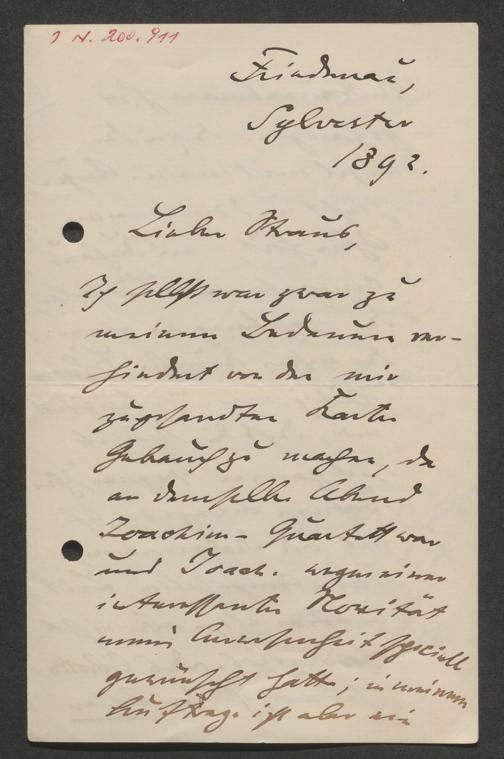 I N. 200.911
Friedenau,
Sylvester
1892.
Lieber Straub,
Ich selbst war zwar zu
meinem Bedauern ver-
hindert von der mir
zugesandten Karte
Gebrauch zu machen, da
an demselben Abend
Joachim-Quartett war
und Joach. wegen einer
interessanten Novität
meine Anwesenheit speciell
gewünscht hatte; in meinem
Auftrage ist aber ein